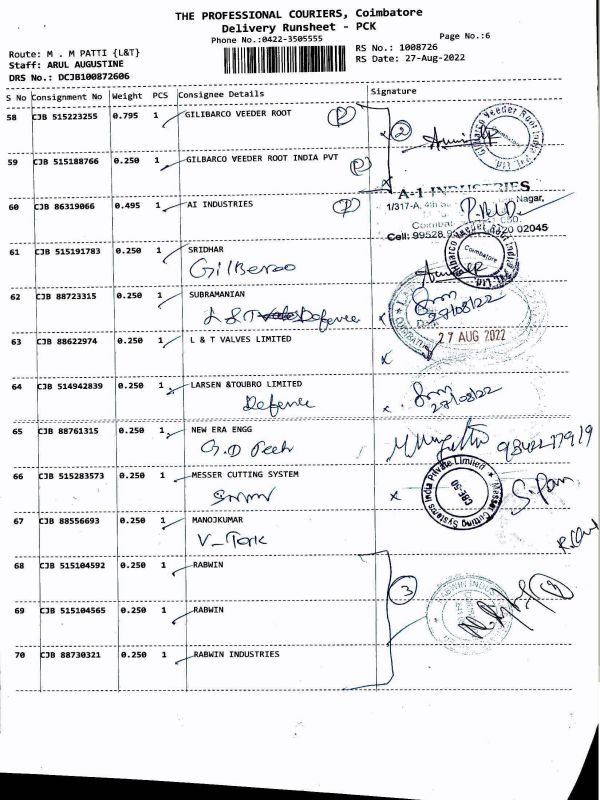 THE PROFESSIONAL COURIERS, Coimbatore
Delivery Runsheet - PCK
Phone No.:0422-3505555
Page No.:6
Route: M . M PATTI {L&T}
RS No.: 1008726
Staff: ARUL AUGUSTINE
RS Date: 27-Aug-2022
DRS No.: DCJB100872606
S No Consignment No Weight PCS Consignee Details Signature
58 CJB 515223255 0.795 1 GILIBARCO VEEDER ROOT P 2
Gilbarco Veeder Root India Pvt. Ltd.
Coimbatore
59 CJB 515188766 0.250 1 GILBARCO VEEDER ROOT INDIA PVT P
A-1 INDUSTRIES
60 CJB 86319066 0.495 1 AI INDUSTRIES P
1/317-A, 4th Nagar,
Cell: 99528 020 02045
61 CJB 515191783 0.250 1 SRIDHAR
Coimbatore
Gilberco
62 CJB 88723315 0.250 1 SUBRAMANIAN
27/08/22
L & T Defence
63 CJB 88622974 0.250 1 L & T VALVES LIMITED
27 AUG 2022
64 CJB 514942839 0.250 1 LARSEN &TOUBRO LIMITED
27/08/22
Defence
65 CJB 88761315 0.250 1 NEW ERA ENGG
G.D Tech
66 CJB 515283573 0.250 1 MESSER CUTTING SYSTEM
Messer Cutting Systems India Private Limited
CBE-50
67 CJB 88556693 0.250 1 MANOJKUMAR
V-Tork
68 CJB 515104592 0.250 1 RABWIN
3
69 CJB 515104565 0.250 1 RABWIN
70 CJB 88730321 0.250 1 RABWIN INDUSTRIES